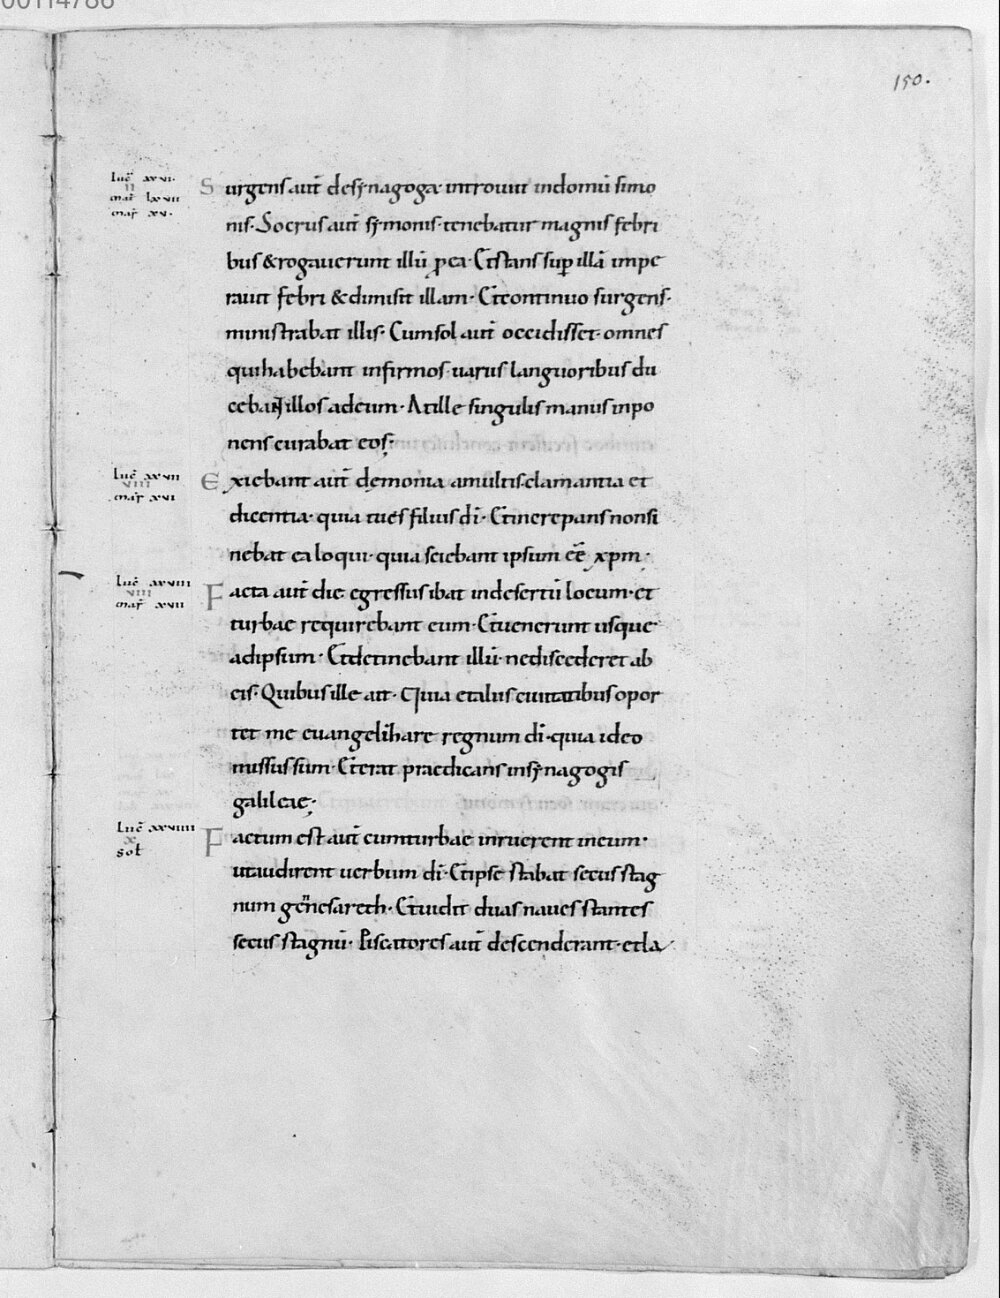 00114786
150.
luc̄ xxvi.
II
mar̄ lxvii
mar̄ xv.
Surgens aut̄ desynagoga introuit indomū simo
nis. Socrus aut̄ symonis tenebatur magnis febri
bus & rogauerunt illū pea. Et stans sup illā impe
rauit febri & dimisit illam. Et continuo surgens.
ministrabat illis. Cumsol aut̄ occidisset. omnes
quihabebant infirmos uariis languoribus du
cebant illos adeum. At ille singulis manus inpo
nens curabat eos;
luc̄ xxvii
VIII
mar̄ xvi
Exiebant aut̄ demonia amultis clamantia et
dicentia. quia tu es filius dī. Et increpans nonsi
nebat ea loqui. quia sciebant ipsum ēē xpm.
luc̄ xxviii
VIII
mar̄ xvii
Facta aut̄ die egressus ibat indesertū locum. et
turbae requirebant eum. Et uenerunt usque
adipsum. Et detinebant illū. nediscederet ab
eis. Quibus ille ait. Quia et aliis ciuitatibus opor
tet me euangelihare regnum dī. quia ideo
missus sum. Et erat praedicans insynagogis
galileae;
luc̄ xxviiii
X
sol
Factum est aut̄ cumturbae inruerent ineum.
utaudirent uerbum dī. Et ipse stabat secus stag
num gennesareth. Et uidit duas naues stantes
secus stagnū. Piscatores aut̄ descenderant. et la